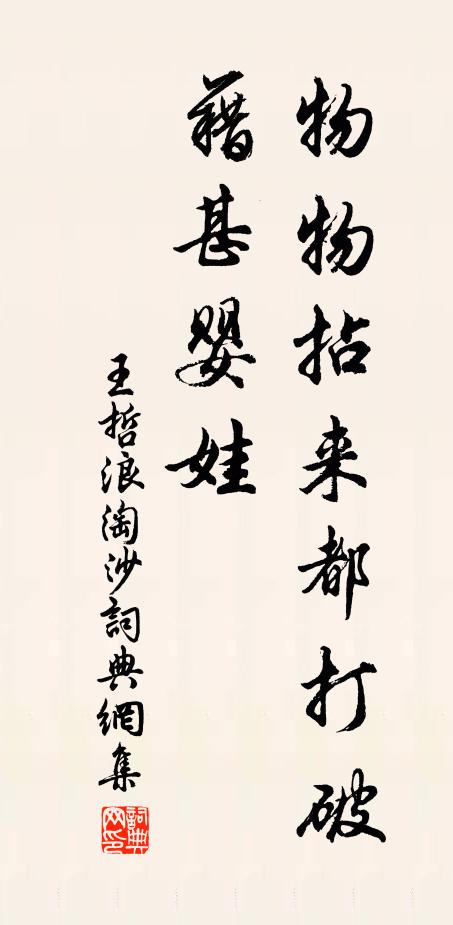 物物拈来都打破
藉甚婴娃
王哲浪淘沙詞典網集
詞典
网印